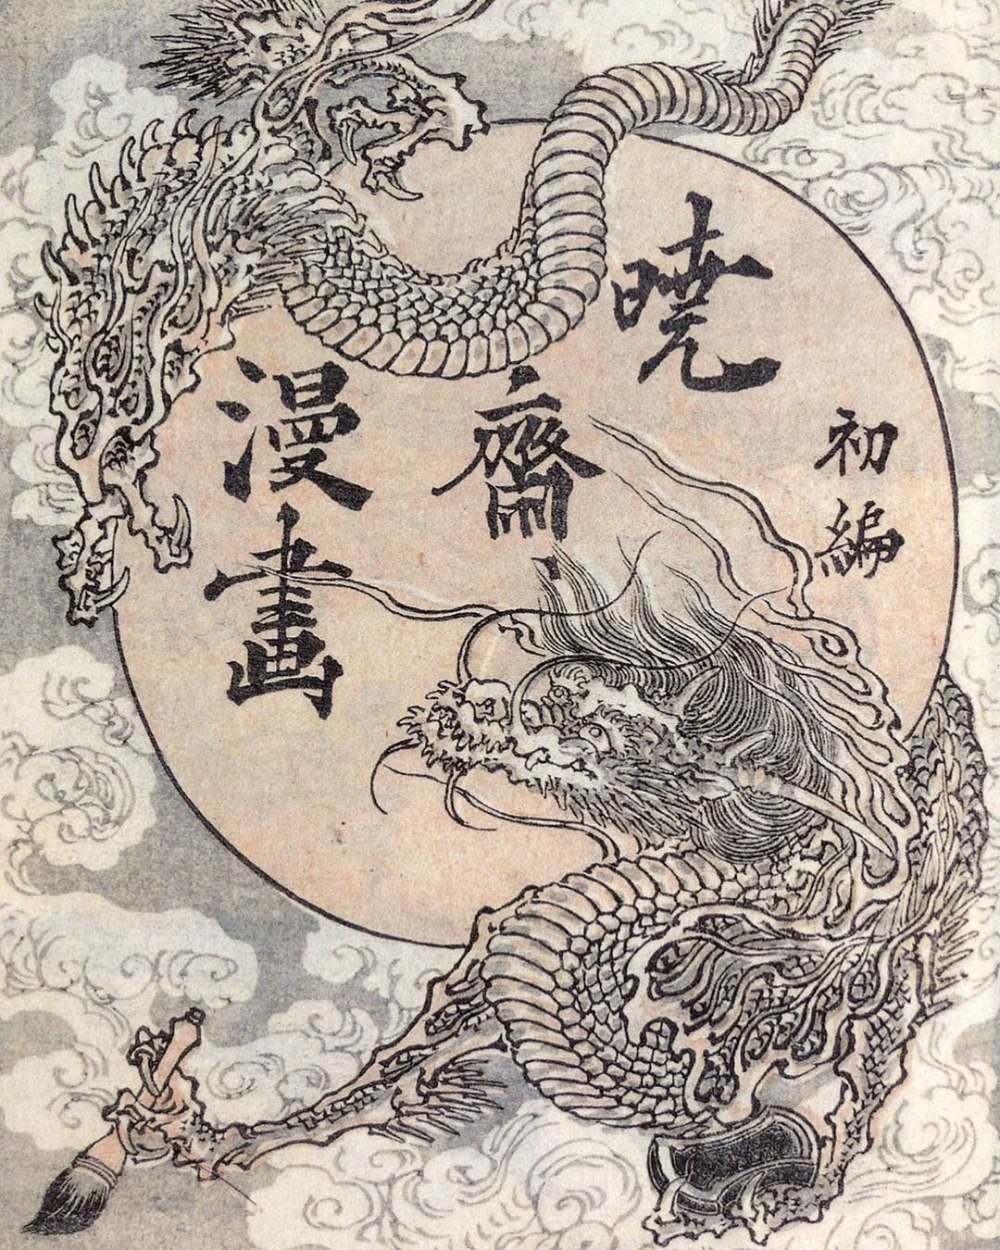 暁齋漫畫
初編